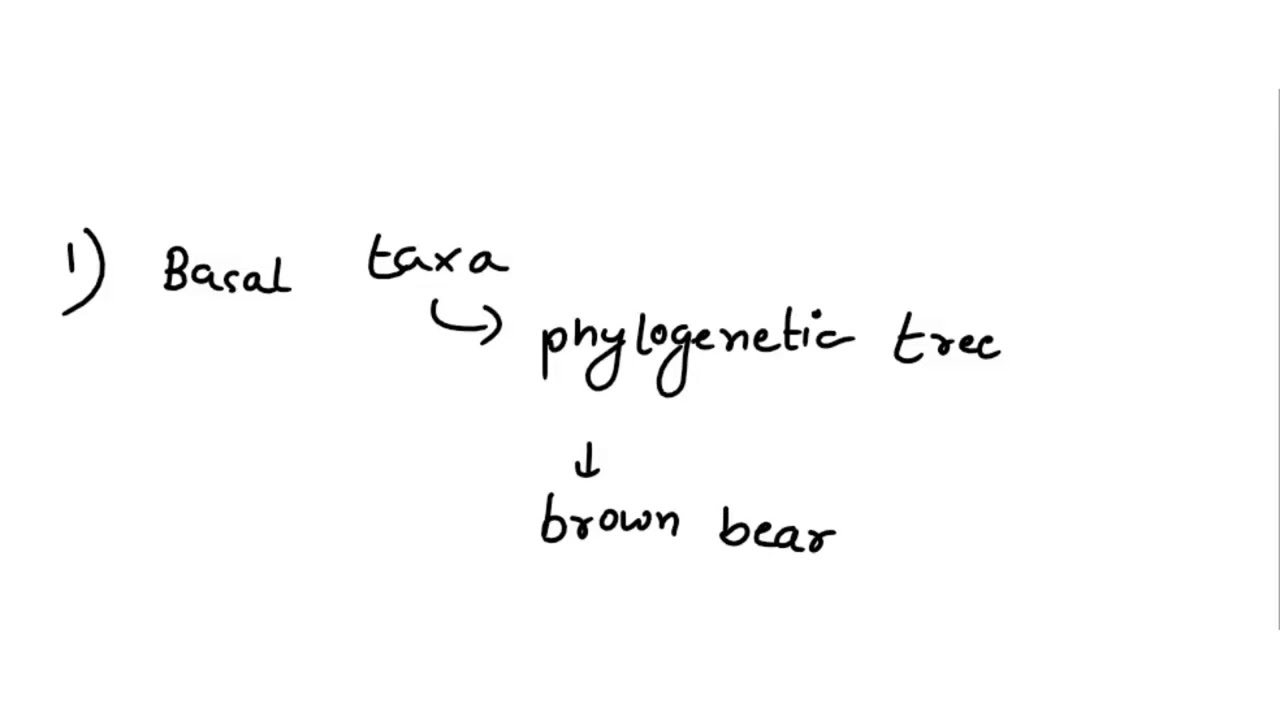 1) Basal taxa
↳ phylogenetic tree
↓
brown bear